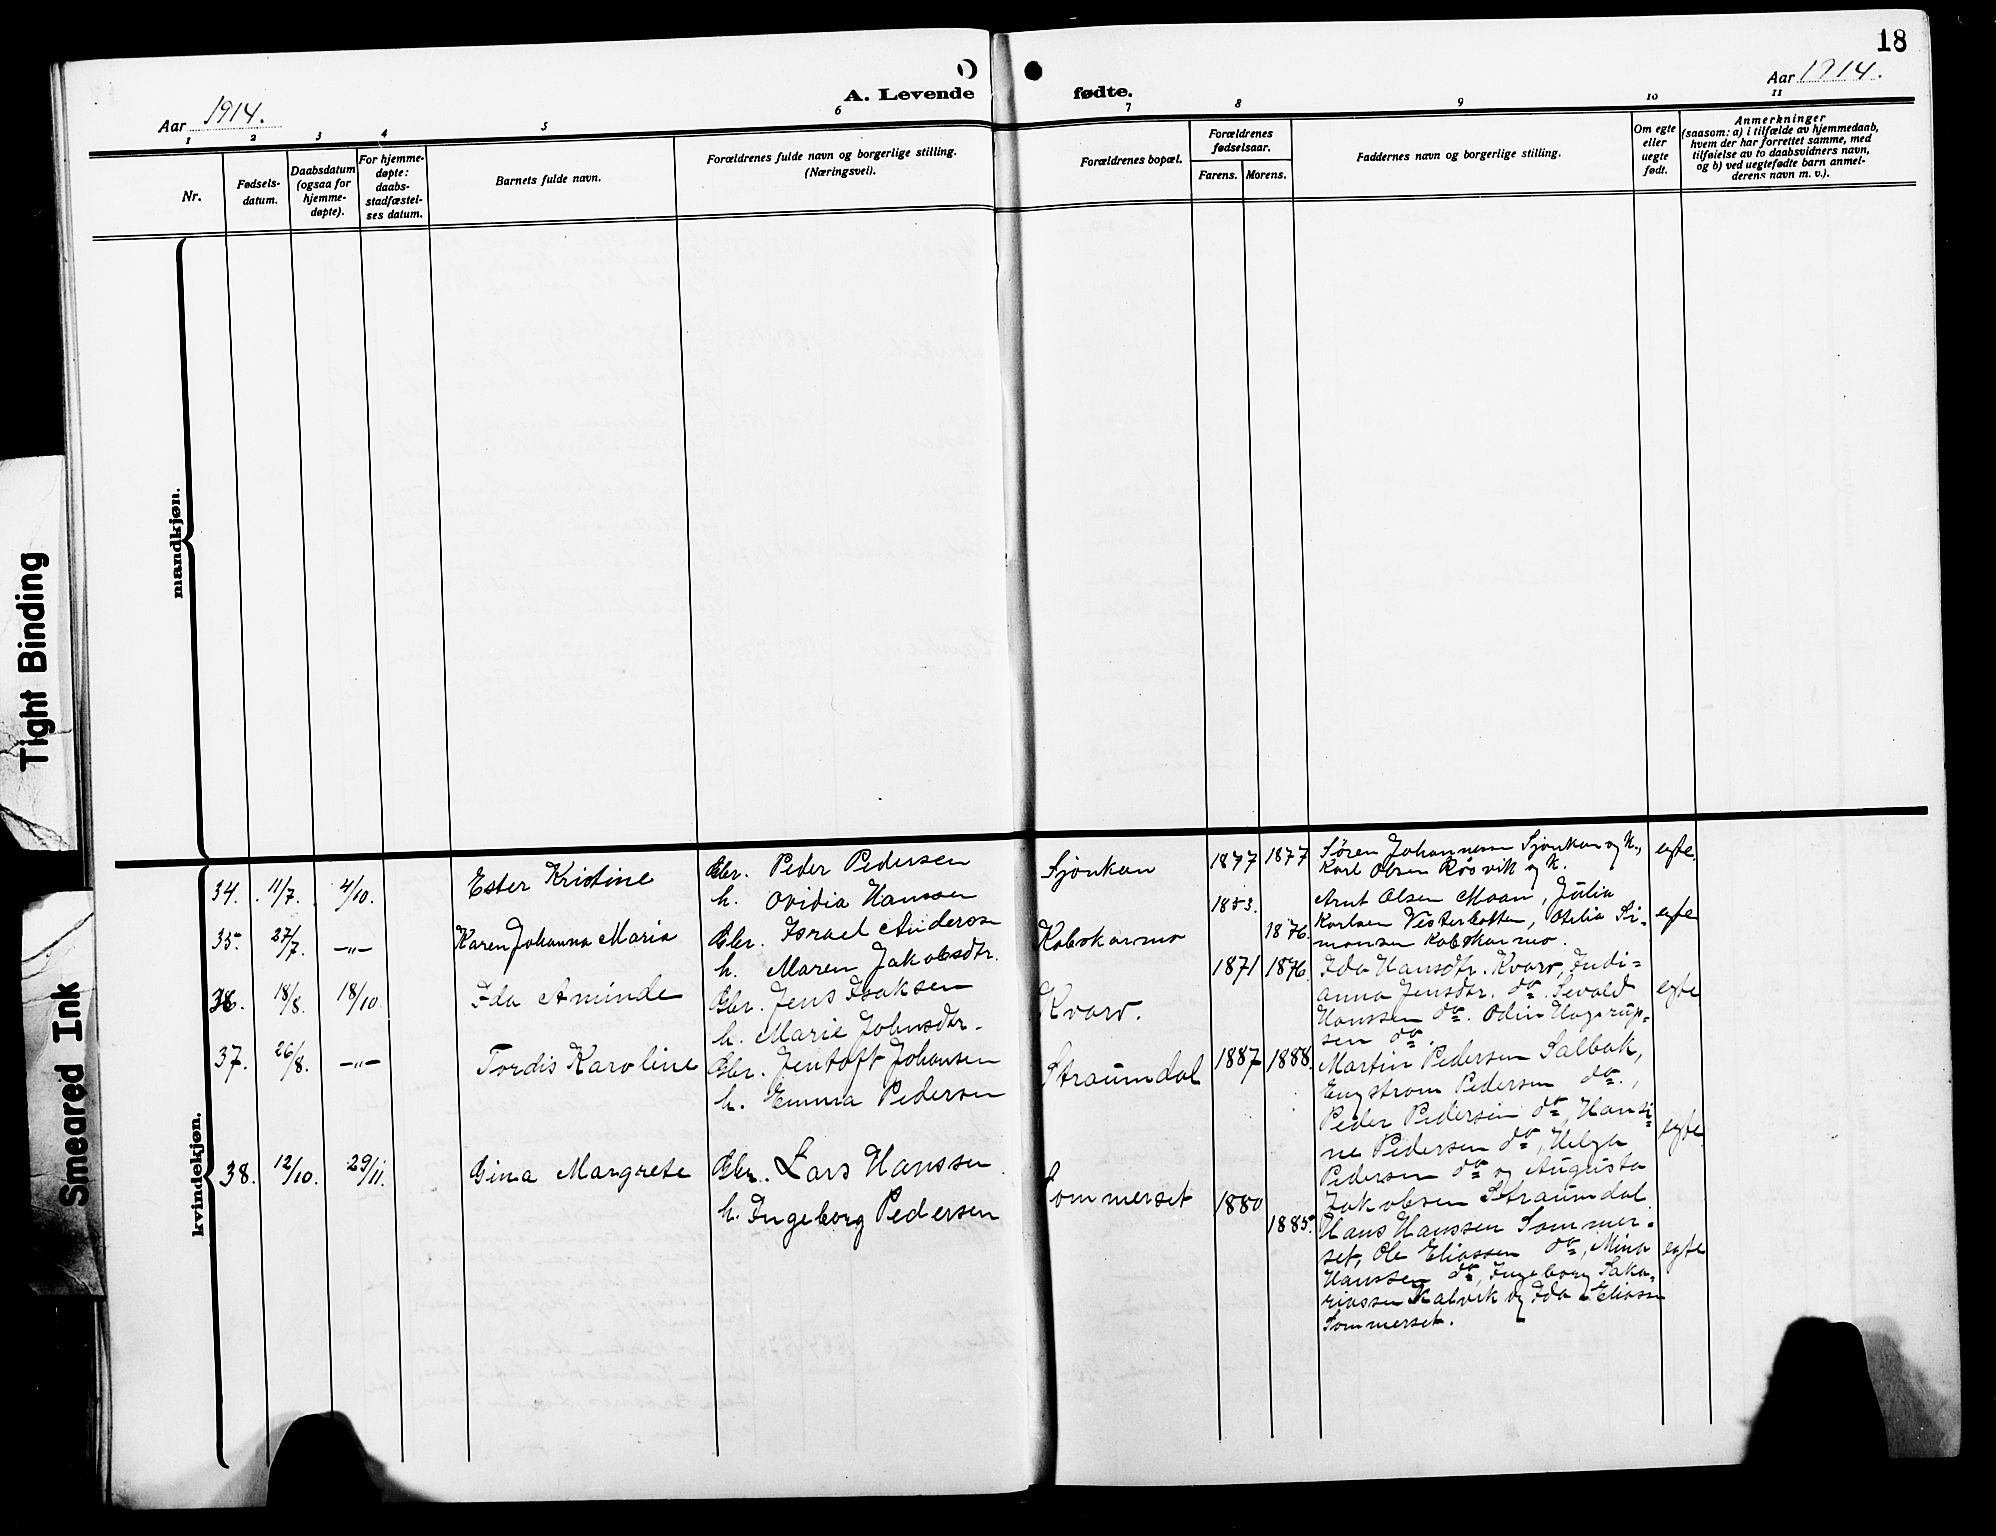 18
Aar 1914.
A. Levende
fødte.
Aar 1914.
1 2 3 4 5 6 7 8 9 10 11
Nr.
Fødsels-
datum.
Daabsdatum
(ogsaa for
hjemme-
døpte).
For hjemme-
døpte:
daabs-
stadfæstel-
ses datum.
Barnets fulde navn.
Forældrenes fulde navn og borgerlige stilling.
(Næringsvei).
Forældrenes bopæl.
Forældrenes
fødselsaar.
Farens. Morens.
Faddernes navn og borgerlige stilling.
Om egte
eller
uegte
født.
Anmerkninger
(saasom: a) i tilfælde av hjemmedaab,
hvem der har forrettet samme, med
tilføielse av to daabsvidners navn,
og b) ved uegtefødte barn anmel-
derens navn m. v.).
mandkjøn.
kvindekjøn.
Tight Binding
Smeared Ink
34. 11/7. 4/10. Ester Kristine
Gbr. Peder Pedersen
h. Ovidia Hanssen
Sjönkan 1877 1877
Søren Johannesen Sjönkan og K.,
Karl Olsen Røsvik og K.
egte.
35. 27/7. —"— Karen Johanna Maria
Gbr. Israel Anderse
h. Maren Jakobsdtr.
Kobskarmo 1853. 1876.
Arnt Olsen Moan, Julia
Karlsen Vesterbotten, Otelia Si-
monsen Kobskarmo.
egte
36. 18/8. 18/10. Ida Aminde
Gbr. Jens Isaksen
h. Marie Johnsdtr.
Kvarv. 1871 1876
Ida Hansdtr. Kvarv, Indi=
anna Jensdtr. do. Sevald
Hanssen do. Odin Hagerup-
sen do.
egte
37. 26/8. —"— Tordis Karoline
Gbr. Jentoft Johansen
h. Emma Pedersen
Straumdal 1887 1888.
Martin Pedersen Salbak,
Engstrom Pedersen do.,
Peder Pedersen do, Hansi-
ne Pedersen do, Helga
Pedersen do og Augusta
Jakobsen Straumdal
egte.
38. 12/10. 29/11. Gina Margrete
Gbr. Lars Hanssen
h. Ingeborg Pedersen
Sommerset 1880 1885.
Hans Hanssen Sommer-
set, Ole Eliassen do, Mina
Hanssen do, Ingeborg Saka-
riassen Kalvik og Ida Eliassen
Sommerset.
egte